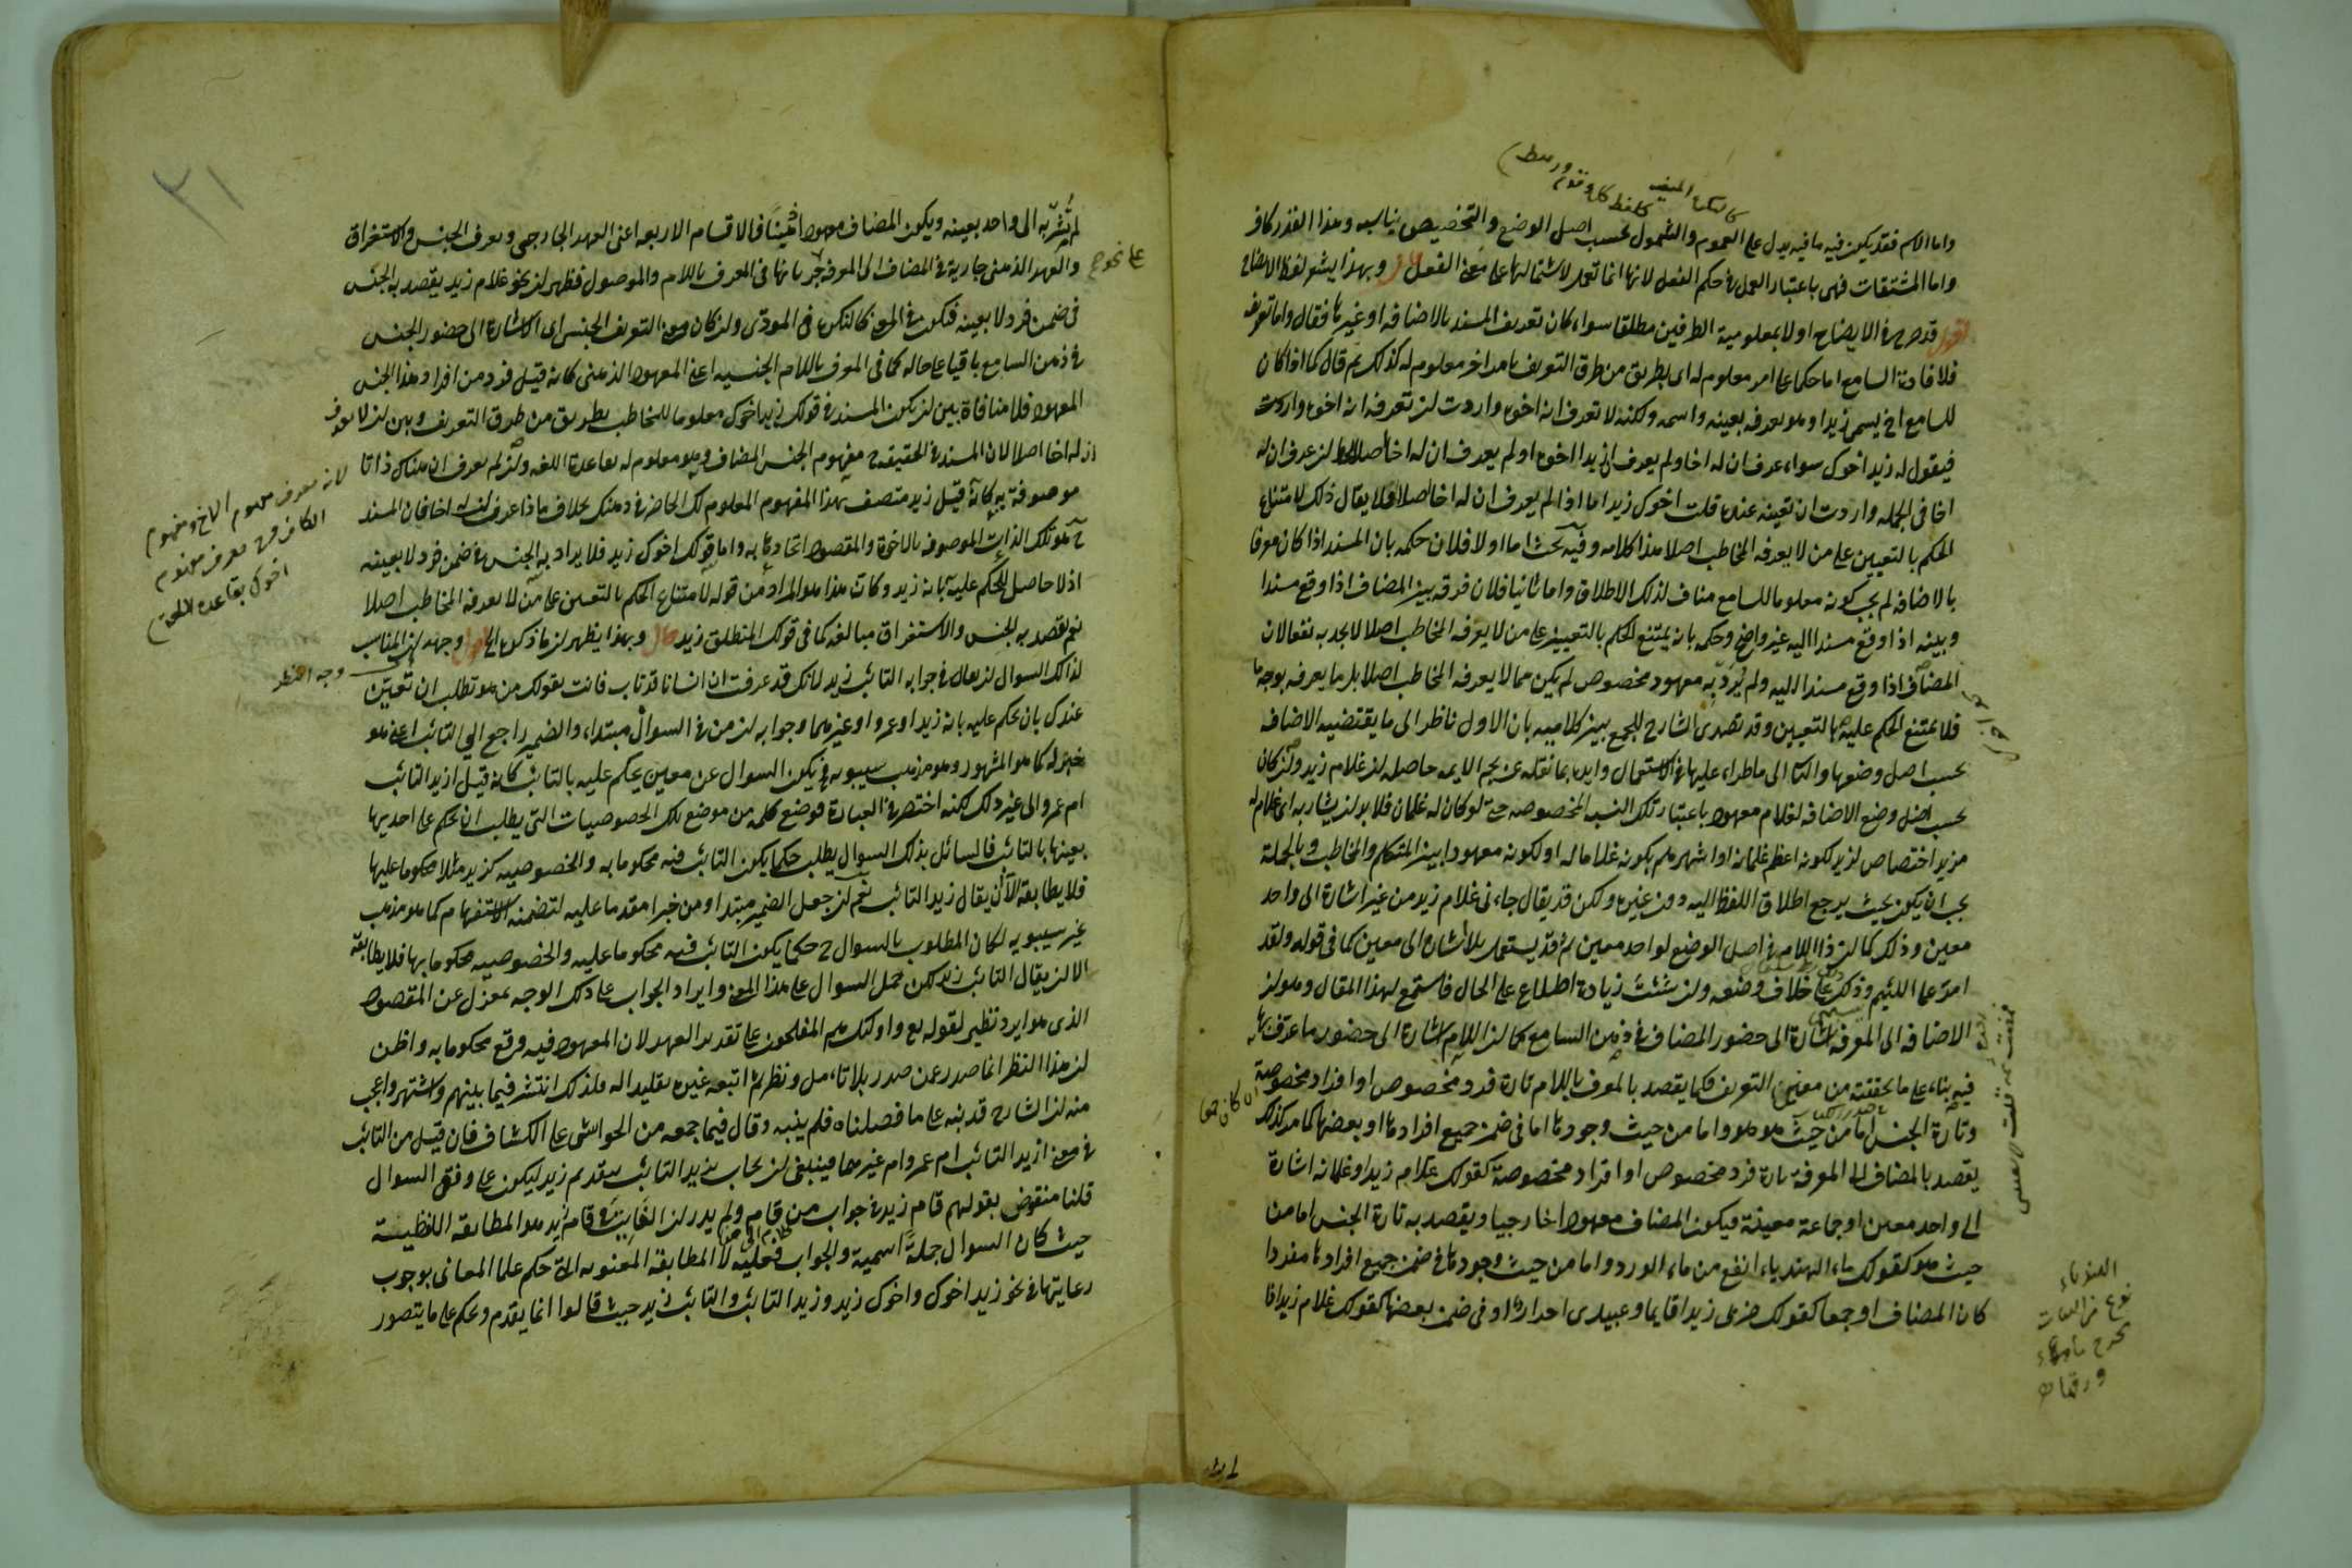 واما الاسم فقد يكون فيه ما فيه يدل على العموم والشمول بحسب اصل الوضع والتخصيص يناسبه وهذا القدر كاف
واما المشتقات فهى باعتبار العمل فى حكم الفعل لانها انما تعمل لاشتمالها على معنى الفعل قال وبهذا يشعر لفظ الايضاح
اقول قد صرح فى الايضاح اولا بمعلومية الطرفين مطلقا سواء كان تعريف المسند بالاضافه او غيرها فقال واما تعريفه
فلافادة السامع اما حكما على امر معلوم له اى بطريق من طرق التعريف بامر اخر معلوم له كذلك ثم قال كما اذا كان
للسامع اخ يسمى زيدا وهو يعرفه بعينه واسمه ولكنه لا تعرف انه اخوه واردت ان تعرفه انه اخوه واردت
فيقول له زيد اخوك سواء عرف ان له اخا ولم يعرف ان زيدا اخوه او لم يعرف ان له اخا اصلا وان عرف ان له
اخا فى الجمله واردت ان تعينه عنده قلت اخوك زيد اما اذا لم يعرف ان له اخا اصلا فلا يقال ذلك لامتناع
الحكم بالتعيين على من لا يعرفه المخاطب اصلا هذا كلامه وفيه بحث اما اولا فلان حكمه بان المسند اذا كان معرفا
بالاضافه لم يجب كونه معلوما للسامع مناف لذلك الاطلاق واما ثانيا فلان فرقه بين المضاف اذا وقع مسندا
وبينه اذا وقع مسندا اليه غير واضح وحكمه بانه يمتنع الحكم بالتعيين على من لا يعرفه المخاطب اصلا لا يجدبه نفعا لان
المضاف اذا وقع مسندا اليه ولم يرد به معهود مخصوص لم يكن مما لا يعرفه المخاطب اصلا بل مما يعرفه بوجه ما
فلا يمتنع الحكم عليه بالتعيين وقد تصدى الشارح للجمع بين كلاميه بان الاول ناظر الى ما يقتضيه الاضافه
بحسب اصل وضعها والثا الى ما طراء عليها فى الاستعمال وايده بما نقله عن نجم الايمه حاصله ان غلام زيد وان كان
بحسب اصل وضع الاضافه لغلام معهود باعتبار تلك النسبه المخصوصه حتى لو كان له غلمان فلا بد ان يشار به الى غلام له
مزيد اختصاص لزيد لكونه اعظم غلمانه او اشهرهم بكونه غلاما له او لكونه معهودا بين المتكلم والمخاطب وبالجملة
يجب ان يكون بحيث يرجع اطلاق اللفظ اليه دون غيره ولكن قد يقال جاءنى غلام زيد من غير اشارة الى واحد
معين وذلك كما ان ذا اللام فى اصل الوضع لواحد معين ثم قد يستعمل بلا اشاره الى معين كما فى قوله ولقد
امر على اللئيم وذلك على خلاف وضعه وان شئت زيادة اطلاع على الحال فاستمع لهذا المقال وهو ان
الاضافه الى المعرفه اشارة الى حضور المضاف فى ذهن السامع كما ان اللام اشارة الى حضور ما عرف بها
فيه بناء على ما تحققته من معنى التعريف فكما يقصد بالمعرف باللام تارة فرد مخصوص او افراد مخصوصة
وتارة الجنس اما من حيث هو هو واما من حيث وجودها اما فى ضمن جميع افرادها او بعضها كما مر كذلك
يقصد بالمضاف الى المعرفة تارة فرد مخصوص او افراد مخصوصة كقولك غلام زيد او غلمانه اشارة
الى واحد معين او جماعة معينة فيكون المضاف معهودا خارجيا ويقصد به تارة الجنس اما من
حيث هو كقولك ماء الهندباء انفع من ماء الورد واما من حيث وجودها فى ضمن جميع افرادها مفردا
كان المضاف او جمعا كقولك ضربى زيدا قايما وعبيدى احرار او فى ضمن بعضها كقولك غلام زيد اذا
الهندباء
نوع من النبات
لم تشر به الى واحد بعينه ويكون المضاف معهودا ذهنيا فالاقسام الاربعه اعنى العهد الخارجى وتعرف الجنس والاستغراق
والعهد الذهنى جارية فى المضاف الى المعرفه جريانها فى المعرف باللام والموصول فظهر ان نحو غلام زيد يقصد به الجنس
فى ضمن فرد لا بعينه فيكون فى المعنى كالنكرة فى المؤدى وان كان معنى التعريف الجنسى اى الاشارة الى حضور الجنس
فى ذهن السامع باقيا على حاله كما فى المعرف باللام الجنسيه اعنى المعهود الذهنى كانه قيل فرد من افراد هذا الجنس
المعهود فلا منافاة بين ان يكون المسند فى قولك زيد اخوك معلوما للمخاطب بطريق من طرق التعريف وبين ان لا يعرف
ان له اخا اصلا لان المسند فى الحقيقه ح مفهوم الجنس المضاف وهو معلوم له بقاعدة اللغه وان لم يعرف ان هناك ذاتا
موصوفة به كانه قيل زيد متصف بهذا المفهوم المعلوم لك الحاضر فى ذهنك بخلاف ما اذا عرف ان له اخا فان المسند
ح هو تلك الذات الموصوفه بالاخوة والمقصود اتحادها به واما قولك اخوك زيد فلا يراد به الجنس فى ضمن فرد لا بعينه
اذ لا حاصل للحكم عليه بانه زيد وكان هذا هو المراد من قوله لامتناع الحكم بالتعيين على من لا يعرفه المخاطب اصلا
نعم لقصد به الجنس والاستغراق مبالغه كما فى قولك المنطلق زيد قال وبهذا يظهر ان ما ذكره الخ اقول وجهه ان المناسب
لذلك السوال ان يقال فى جوابه التائب زيد لانك قد عرفت ان انسانا قد تاب فانت بقولك من هو تطلب ان تعين
عندك بان يحكم عليه بانه زيد او عمرو او غيرهما وجوابه ان من فى السوال مبتداء والضمير راجع الى التائب اعنى هو
خبر له كما هو المشهور وهو مذهب سيبويه فيكون السوال عن معين يحكم عليه بالتائب كانه قيل ازيد التائب
ام عمرو الى غير ذلك لكنه اختصر فى العبارة فوضع كلمه من موضع تلك الخصوصيات التى يطلب ان يحكم على احديها
بعينها بالتائب فالسائل بذلك السوال يطلب حكما يكون التائب فيه محكوما به والخصوصيه كزيد مثلا محكوما عليها
فلا يطابقه الا ان يقال زيد التائب نعم ان جعل الضمير مبتدا ومن خبرا مقدما عليه لتضمنه الاستفهام كما هو مذهب
غير سيبويه لكان المطلوب بالسوال ح حكما يكون التائب فيه محكوما عليه والخصوصيه محكوما بها فلا يطابقه
الا ان يقال التائب زيد لكن حمل السوال على هذا المعنى وايراد الجواب على ذلك الوجه بمعزل عن المقصود
الذى هو ايراد نظير لقوله تع واولئك هم المفلحون على تقدير العهد لان المعهود فيه وقع محكوما به واظن
ان هذا النظر انما صدر عمن صدر بلا تامل ونظر ثم اتبعه غيره تقليدا له فلذلك انتشر فيما بينهم واشتهر واعجب
منه ان الشارح قد نبه على ما فصلناه فلم يتنبه وقال فيما جمعه من الحواشى على الكشاف فان قيل من التائب
فى معنى ازيد التائب ام عمرو ام غيرهما فينبغى ان يجاب بزيد التائب بتقديم زيد ليكون على وفق السوال
قلنا منقوض بقولهم قام زيد فى جواب من قام ولم يدر ان الفايت فى قام زيد هو المطابقه اللفظية
حيث كان السوال جملة اسمية والجواب فعليه لا المطابقه المعنويه التى حكم علما المعانى بوجوب
رعايتها فى نحو زيد اخوك واخوك زيد وزيد التائب والتائب زيد حيث قالوا انما يقدم ويحكم على ما يتصور
٣١